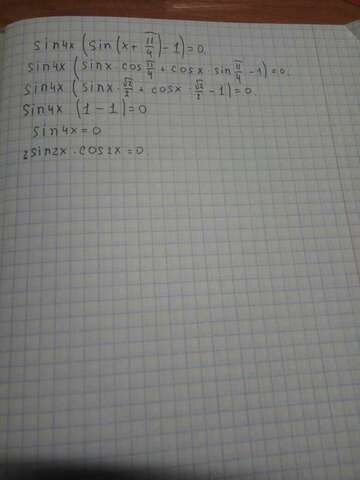 sin4x (sin(x + π/4) - 1) = 0.
sin4x (sinx · cos π/4 + cosx · sin π/4 - 1) = 0.
sin4x (sinx · √2/2 + cosx · √2/2 - 1) = 0.
sin4x (1 - 1) = 0
sin4x = 0
2sin2x · cos2x = 0.